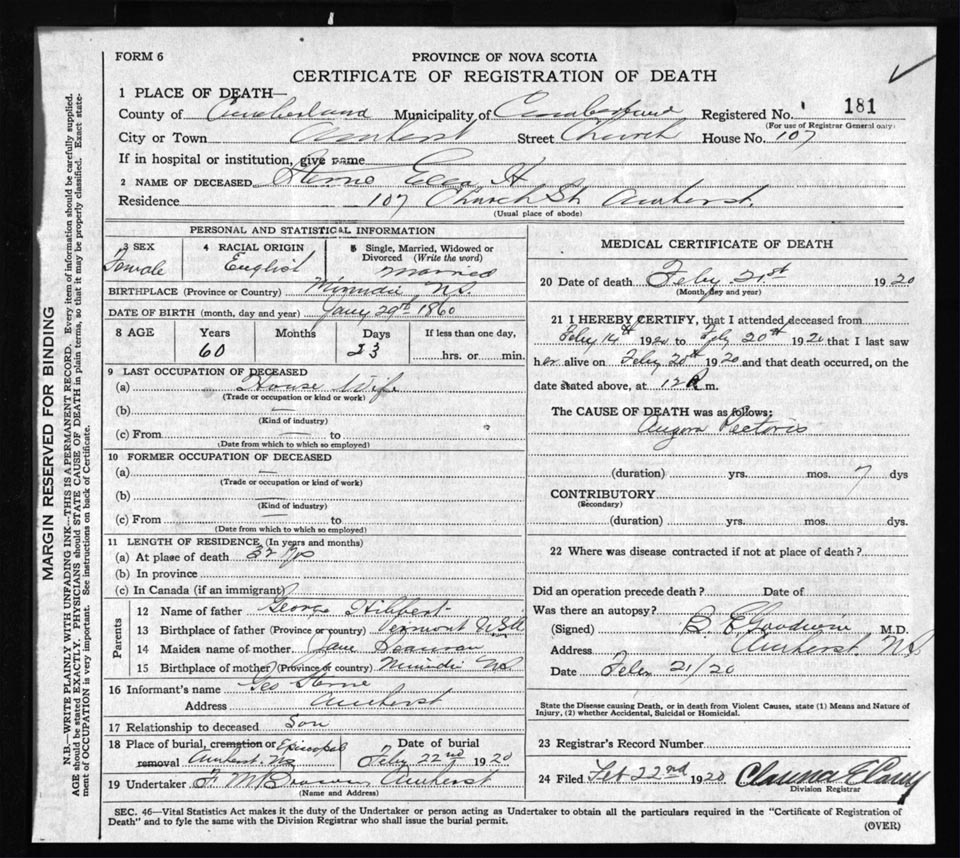 FORM 6
PROVINCE OF NOVA SCOTIA
CERTIFICATE OF REGISTRATION OF DEATH
1 PLACE OF DEATH—
County of Cumberland Municipality of Cumberland Registered No. 181
(For use of Registrar General only)
City or Town Amherst Street Church House No. 107
If in hospital or institution, give name
2 NAME OF DECEASED Sterne Ella H
Residence 107 Church St. Amherst.
(Usual place of abode)
PERSONAL AND STATISTICAL INFORMATION
3 SEX Female
4 RACIAL ORIGIN English
5 Single, Married, Widowed or Divorced (Write the word) Married
BIRTHPLACE (Province or Country) Minudie N.S.
DATE OF BIRTH (month, day and year) Jany 29th 1860
8 AGE Years 60 Months Days 23 If less than one day, hrs. or min.
9 LAST OCCUPATION OF DECEASED
(a) House Wife
(Trade or occupation or kind or work)
(b) —
(Kind of industry)
(c) From — to
(Date from which to which so employed)
10 FORMER OCCUPATION OF DECEASED
(a) —
(Trade or occupation or kind of work)
(b) —
(Kind of industry)
(c) From — to
(Date from which to which so employed)
11 LENGTH OF RESIDENCE (In years and months)
(a) At place of death 32 yrs
(b) In province
(c) In Canada (if an immigrant)
Parents
12 Name of father George Hibbert
13 Birthplace of father (Province or country) Vermont
14 Maiden name of mother Jane Seaman
15 Birthplace of mother (Province or country) Minudie NS
16 Informant's name Geo Sterne
Address Amherst
17 Relationship to deceased Son
18 Place of burial, cremation or removal Episcopal Amherst. NS
Date of burial Feby 22nd 1920
19 Undertaker F. M. Brown, Amherst
(Name and Address)
MEDICAL CERTIFICATE OF DEATH
20 Date of death Feby 21st 1920
(Month, day and year)
21 I HEREBY CERTIFY, that I attended deceased from
Feby 14th 1920 to Feby 20th 1920 that I last saw
her alive on Feby 20th 1920 and that death occurred, on the
date stated above, at 12 m.
The CAUSE OF DEATH was as follows:
Angina Pectoris
(duration) yrs. mos. 7 dys
CONTRIBUTORY
(Secondary)
(duration) yrs. mos. dys.
22 Where was disease contracted if not at place of death?
Did an operation precede death? Date of
Was there an autopsy?
(Signed) B. E. Goodwin M.D.
Address Amherst, NS
Date Feby 21/20
State the Disease causing Death, or in death from Violent Causes, state (1) Means and Nature of
Injury, (2) whether Accidental, Suicidal or Homicidal.
23 Registrar's Record Number
24 Filed Feb 22nd 1920
Division Registrar
SEC. 46—Vital Statistics Act makes it the duty of the Undertaker or person acting as Undertaker to obtain all the particulars required in the "Certificate of Registration of
Death" and to fyle the same with the Division Registrar who shall issue the burial permit.
(OVER)
MARGIN RESERVED FOR BINDING
N.B.—WRITE PLAINLY WITH UNFADING INK—THIS IS A PERMANENT RECORD. Every item of information should be carefully supplied.
AGE should be stated EXACTLY. PHYSICIANS should STATE CAUSE OF DEATH in plain terms, so that it may be properly classified. Exact state-
ment of OCCUPATION is very important. See instructions on back of Certificate.